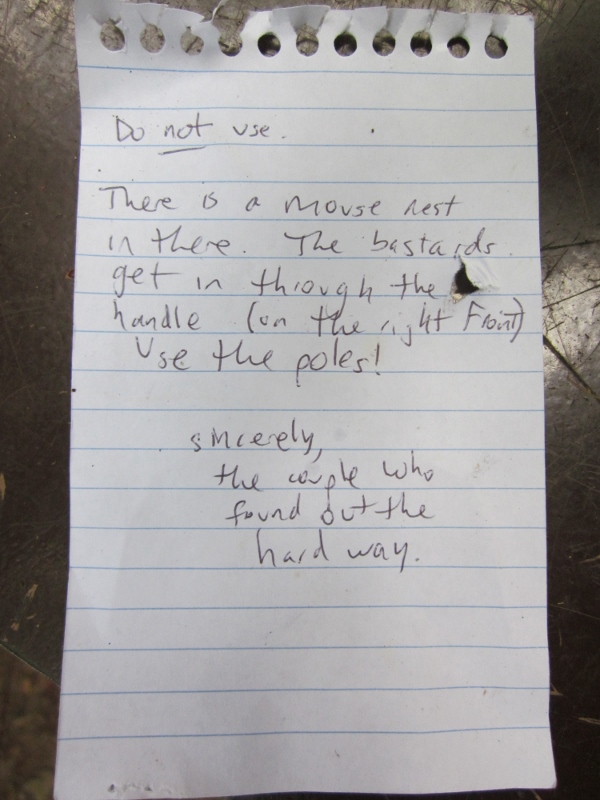 Do not use.
There is a mouse nest
in there. The bastards
get in through the
handle (on the right Front)
Use the poles!
sincerely,
the couple who
found out the
hard way.